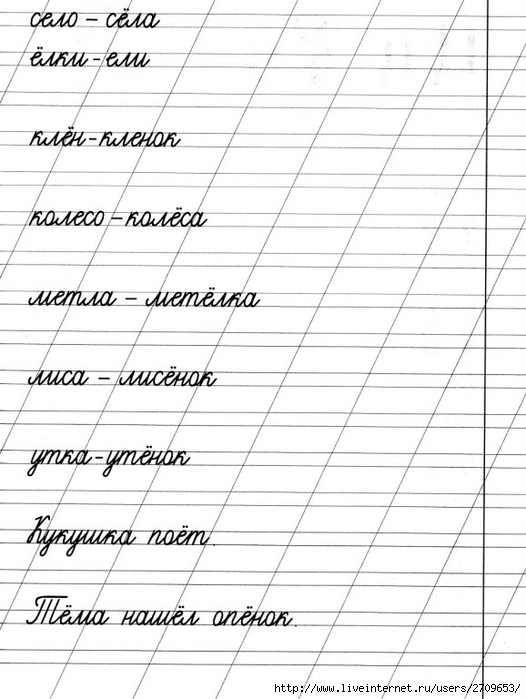 село – сёла
ёлки - ели
клён - кленок
колесо – колёса
метла – метёлка
лиса – лисёнок
утка - утёнок
Кукушка поёт.
Тёма нашёл опёнок.
http://www.liveinternet.ru/users/2709653/